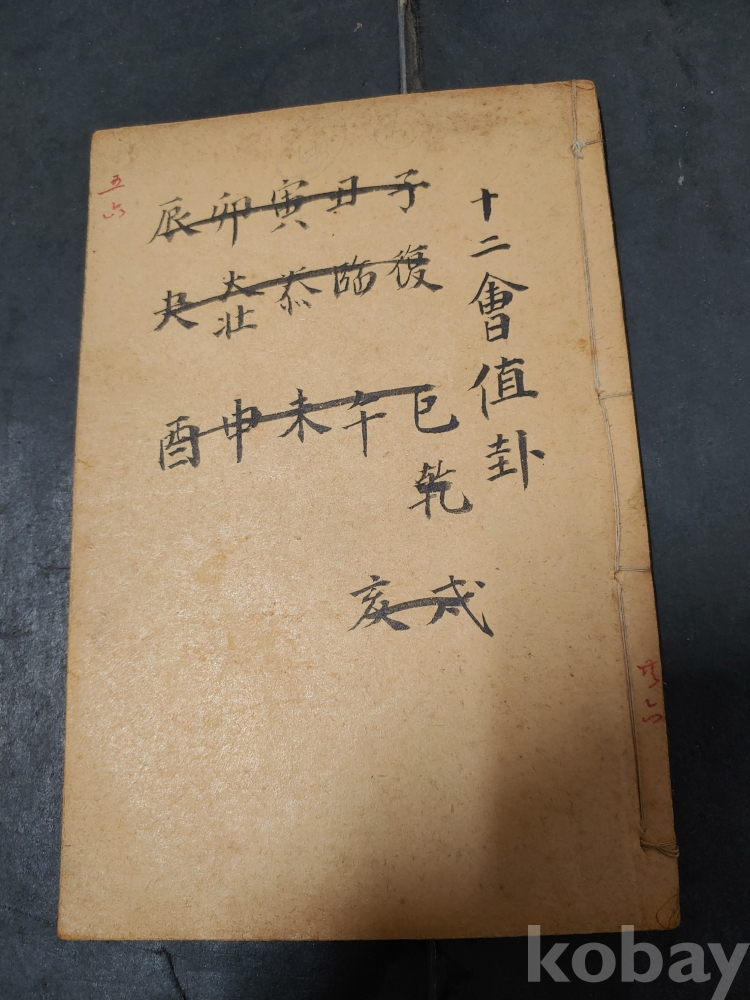 十二會值卦
子丑寅卯辰
復臨泰大壯夬
巳午未申酉
乾
戌亥
五六
六
kobay